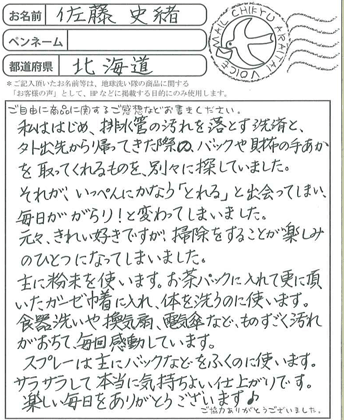 お名前 佐藤 史緒
ペンネーム
都道府県 北海道
MAIL CHIKYU ARAITAI VOICE
*ご記入頂いたお名前等は、地球洗い隊の商品に関する
「お客様の声」として、HPなどに掲載する目的にのみ使用します。
ご自由に商品に関するご感想などお書きください。
私ははじめ、排水管の汚れを落とす洗済と、
外出先から帰ってきた際の、バックや財布の手あか
を取ってくれるものを、別々に探していました。
それが、いっぺんにかなう「とれる」と出会ってしまい、
毎日ががらり!と変わってしまいました。
元々、きれい好きですが、掃除をすることが楽しみ
のひとつになってしまいました。
主に粉末を使います。お茶パックに入れて更に頂
いたガーゼ巾着に入れ、体を洗うのに使います。
食器洗いや換気扇、電気傘など、ものすごく汚れ
がおちて、毎回感動しています。
スプレーは主にバックなどをふくのに使います。
サラサラして本当に気持ちよい仕上がりです。
楽しい毎日をありがとうございます♪
ご協力ありがとうございました。